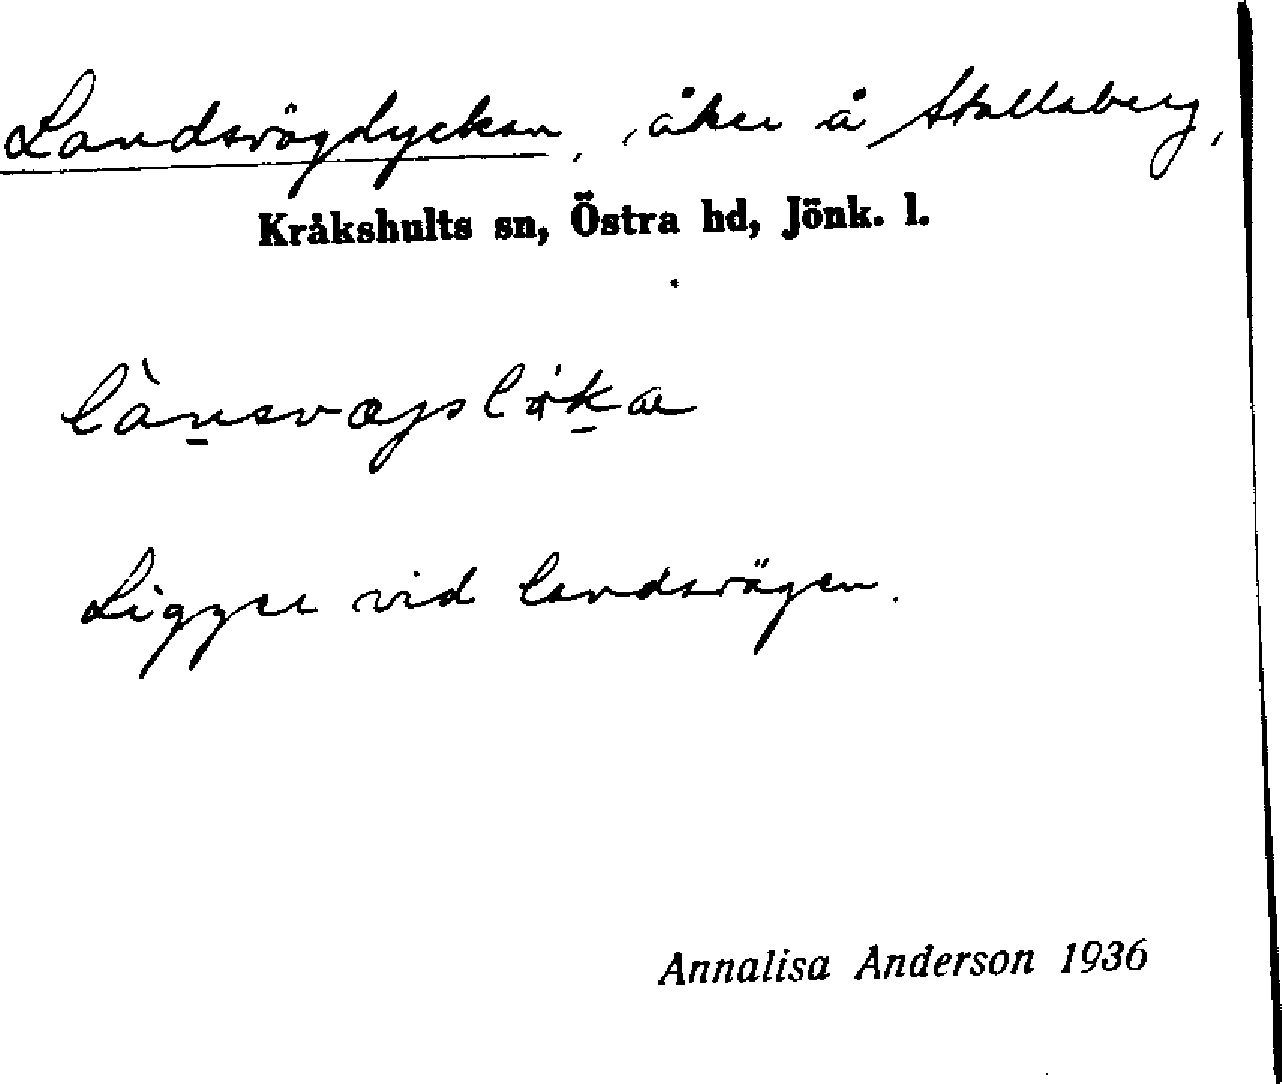 Landsvägslyckan, åker å Stallsberg,
Kråkshults sn, Östra hd, Jönk. l.
Ligger vid landsvägen.
Annalisa Anderson 1936